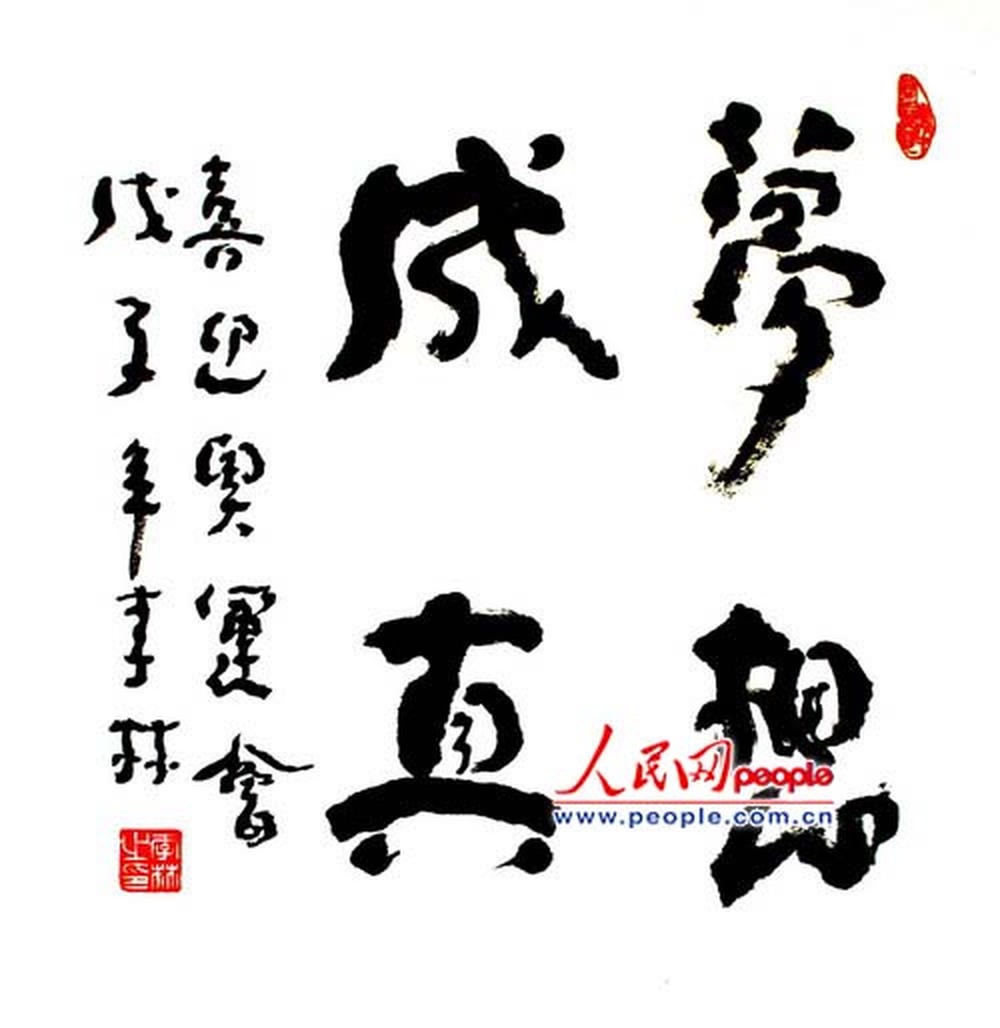 夢想
成真
喜迎奧運會
戊子年李林
李林之印
人民网people
www.people.com.cn